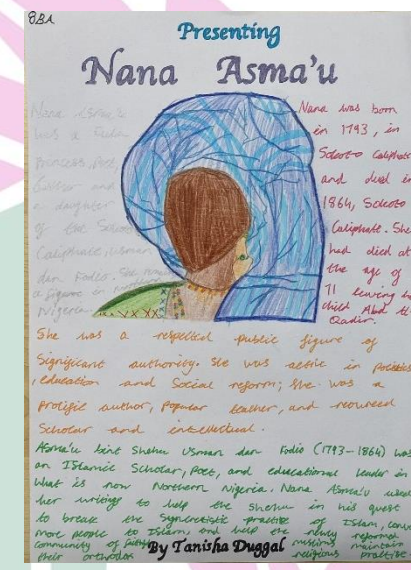 8BA
Presenting
Nana Asma'u
Nana Asma'u
was a Fula
Princess, Poet,
and
a daughter
of the
Caliphate, Usman
dan Fodio. She
a figure in northern
Nigeria
Nana was born
in 1793, in
Sokoto Caliphate
and died in
1864, Sokoto
Caliphate. She
had died at
the age of
71 leaving
child Abd
Qadir.
She was a respected public figure of
Significant authority. She was active in politics
, education and Social reform; She was a
Prolific author, Popular teacher, and renowned
Scholar and intellectual.
Asma'u bint Shehu Usman dan Fodio (1793-1864) was
an Islamic Scholar, Poet, and educational leader in
What is now Northern Nigeria. Nana Asma'u used
her writings to help the Shehu in his quest
to break the Syncretistic practise of Islam,
more people to Islam, and help the newly reformed
community of muslims maintain
their orthodox religious practise.
By Tanisha Duggal